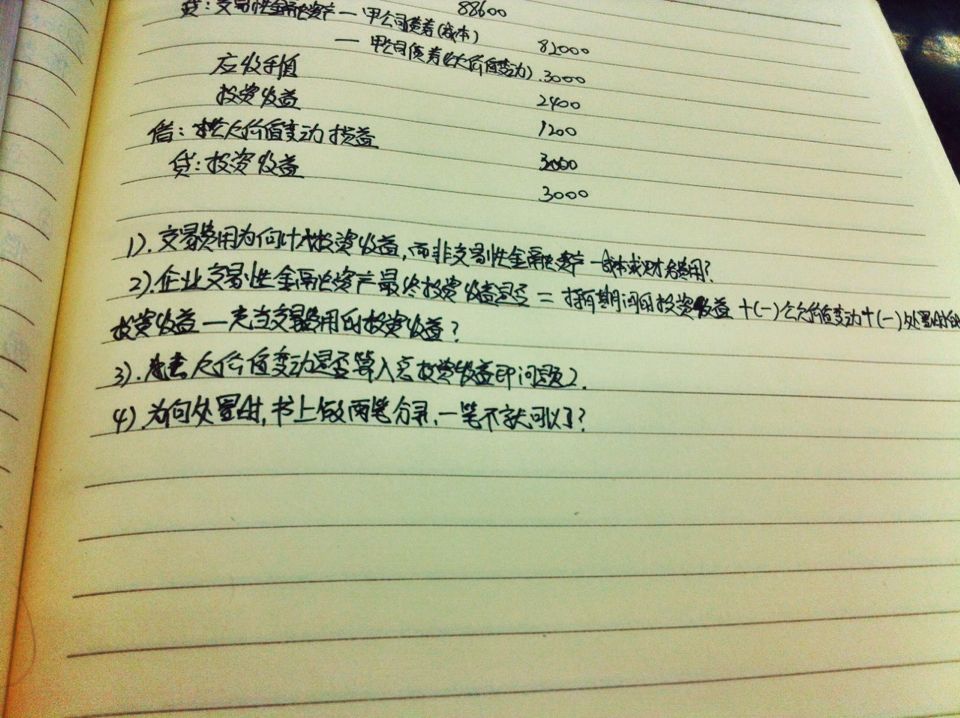 贷：交易性金融资产—甲公司债券(成本) 88600
—甲公司债券(公允价值变动) 82000
应收利息 3000
投资收益 2400
借：公允价值变动损益 1200
贷：投资收益 3000
3000
1).交易费用为何计入投资收益,而非交易性金融资产—成本或财务费用?
2).企业交易性金融资产最终投资收益是否=持有期间的投资收益+(-)公允价值变动+(-)处置时的
投资收益—充当交易费用的投资收益?
3).公允价值变动是否算入总投资收益即问题2.
4).为何处置时,书上做两笔分录,一笔不就可以了?